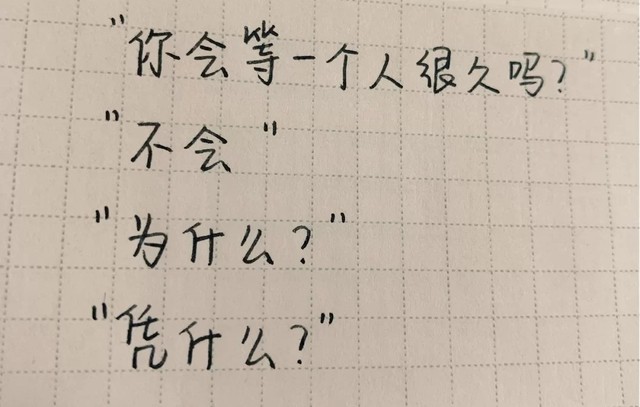 "你会等一个人很久吗?"
"不会"
"为什么?"
"凭什么?"